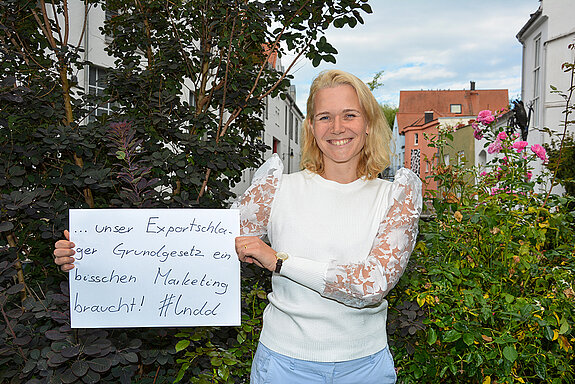 ... unser Exportschla-
ger Grundgesetz ein
bisschen Marketing
braucht! #lndd